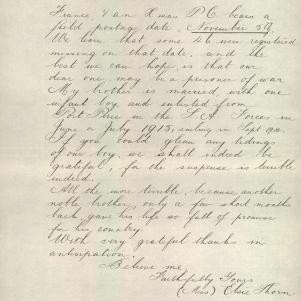 France, & an Xmas P.C. bears a
field postage date, November 5th.
We learn that some 46 were registered
missing on that date, and the
best we can hope, is that our
dear one, may be a prisoner of war.
My brother is married, with one
infant boy, and enlisted from
Port Pirie in the S.A. Forces in
June or July 1915, sailing in Sept 1915.
If you could glean any tidings
of our boy, we shall indeed be
grateful, for the suspense is terrible
indeed.
All the more terrible, because another
noble brother, only a few short months
back, gave his life so full of promise
for his country.
With very grateful thanks in
anticipation.
Believe me
Faithfully Yours
(Miss) Elsie Thorn